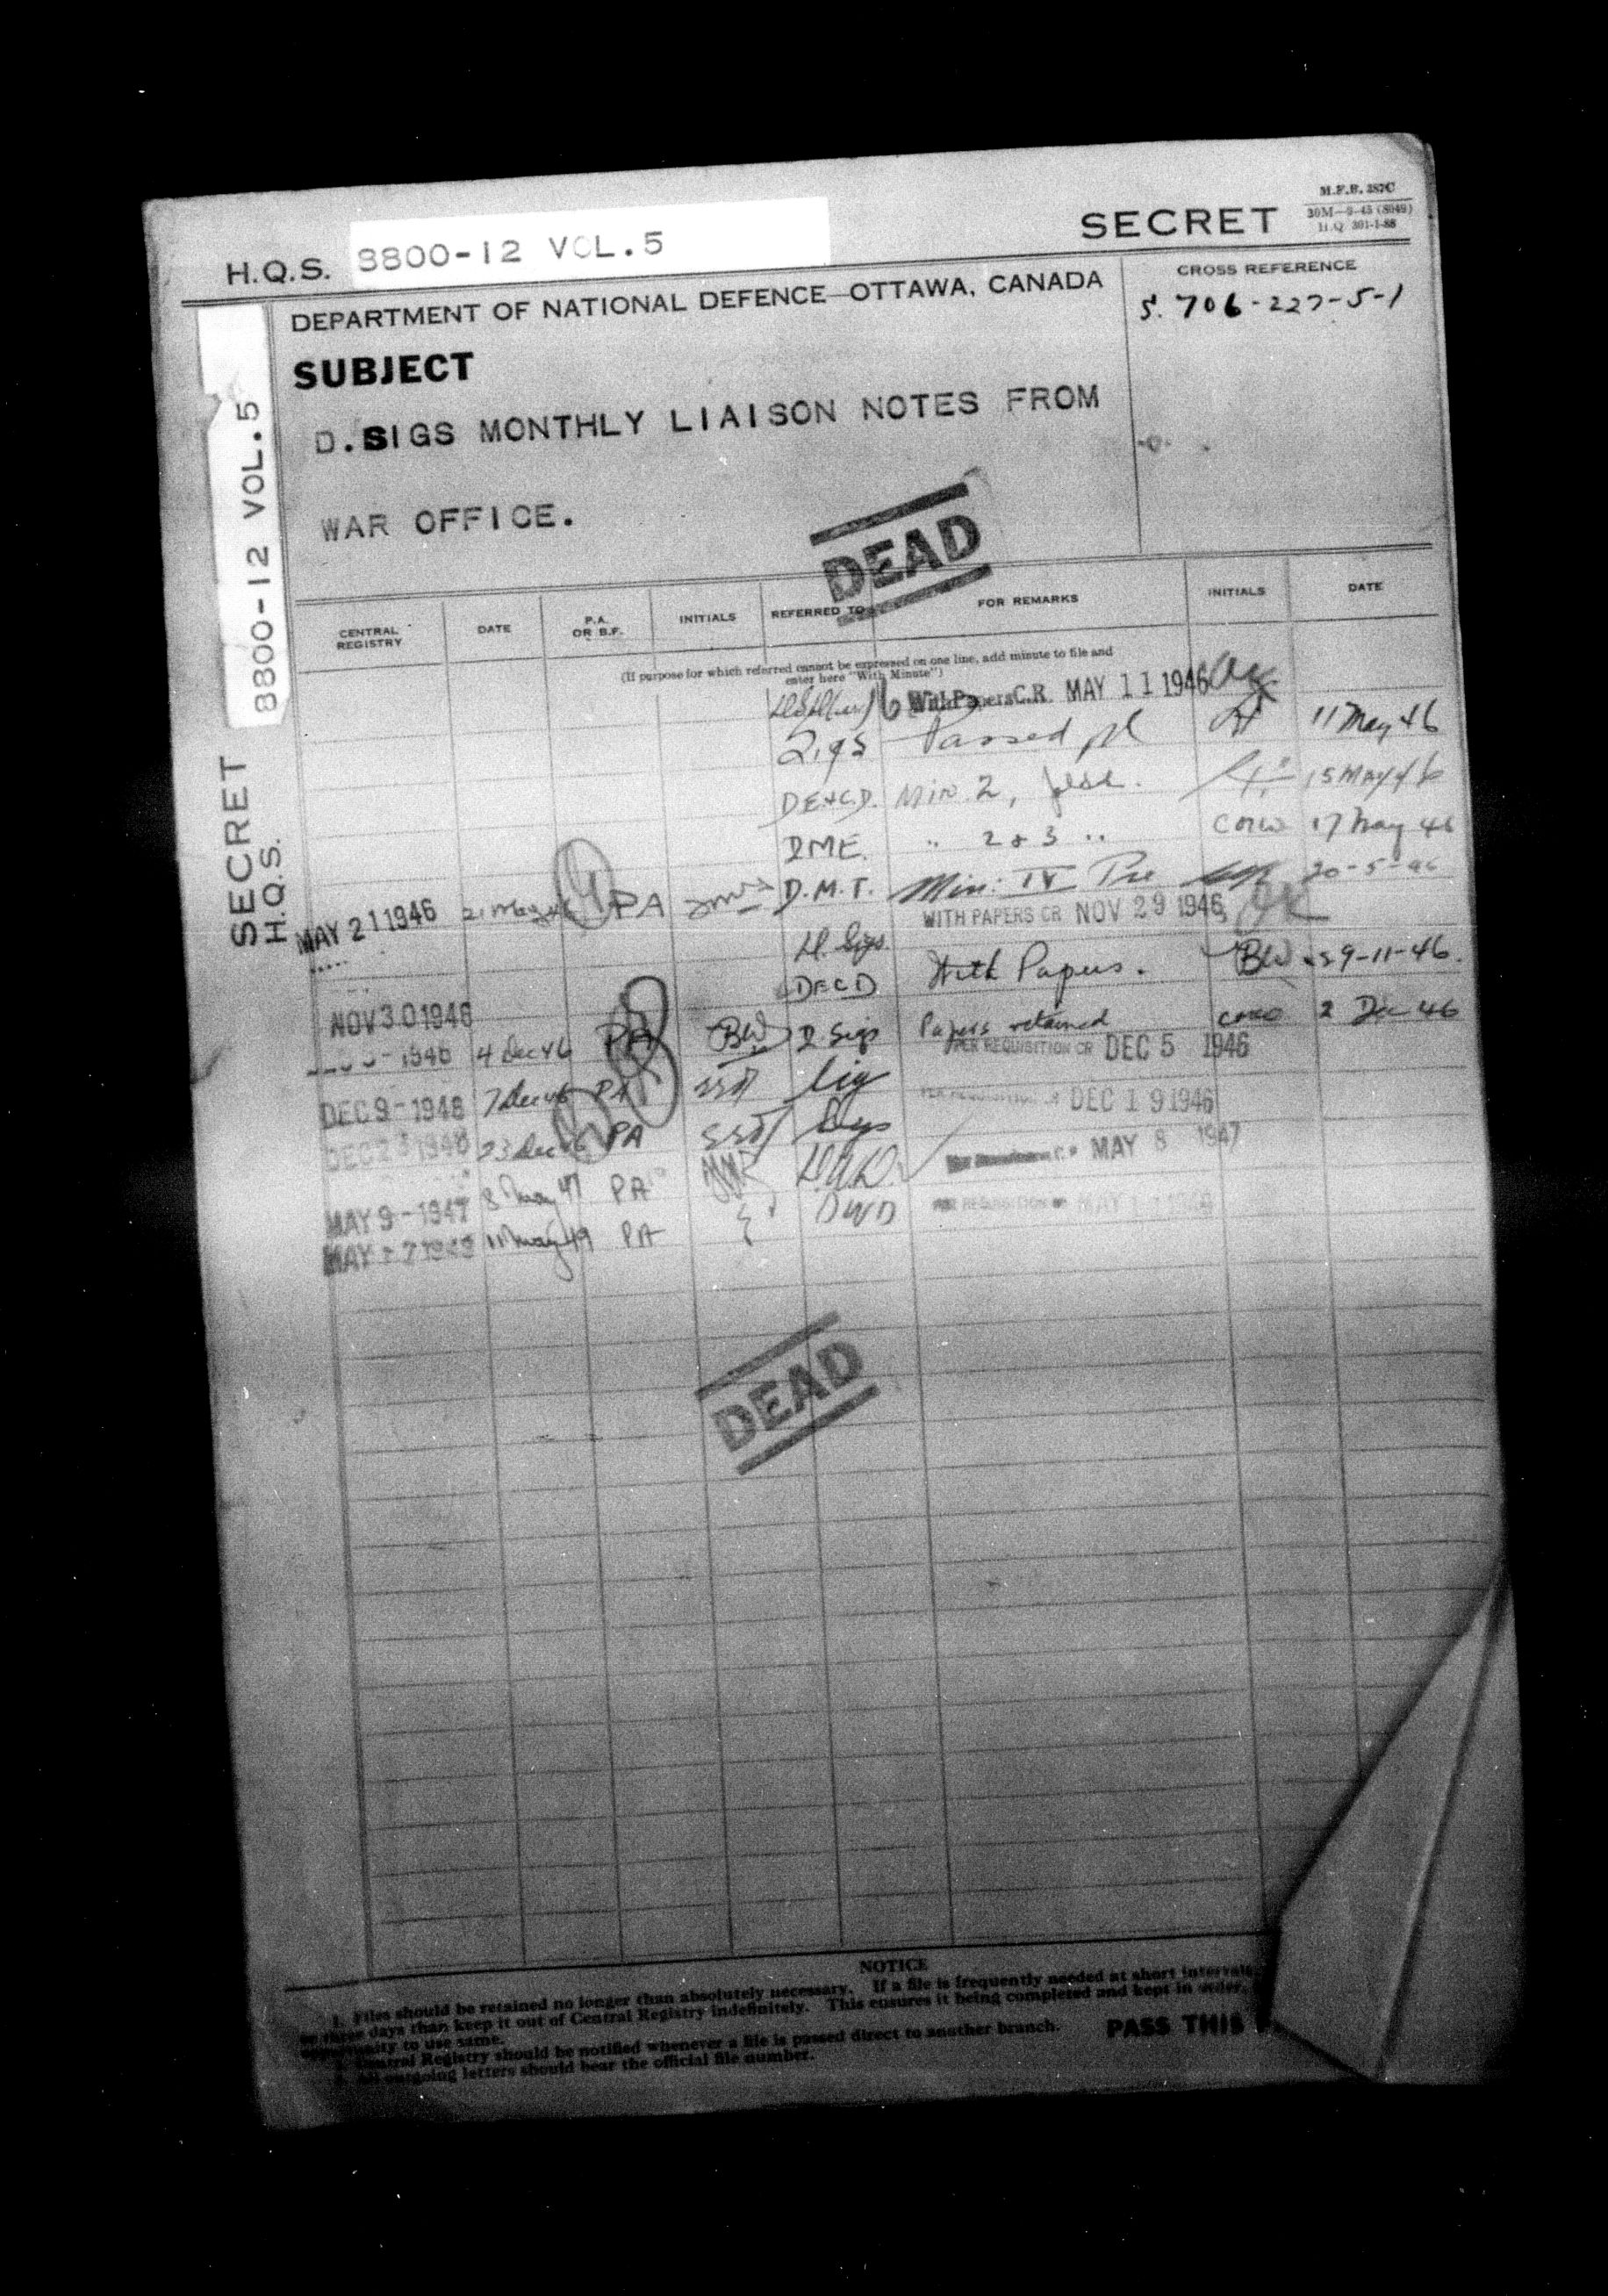 M.F.B. 387C
30M—9-45 (8049)
H.Q. 301-1-88
SECRET
H.Q.S. 8800-12 VOL.5
DEPARTMENT OF NATIONAL DEFENCE—OTTAWA, CANADA
CROSS REFERENCE
S. 706-227-5-1
SUBJECT
D.SIGS MONTHLY LIAISON NOTES FROM
WAR OFFICE.
DEAD
SECRET
H.Q.S. 8800-12 VOL.5
CENTRAL REGISTRY DATE P.A. OR B.F. INITIALS REFERRED TO FOR REMARKS INITIALS DATE
(If purpose for which referred cannot be expressed on one line, add minute to file and
enter here "With Minute")
With Papers C.R. MAY 11 1946
Passed pl 11 May 46
DE&C.D. Min 2, 15 May 46
DME. " 2 & 3 " 17 May 46
MAY 21 1946 21 May 46 PA D.M.T. Min: IV 20-5-46
WITH PAPERS CR NOV 29 1946
D. Sigs
DECD With Papers. BW 29-11-46.
NOV 30 1946
1946 4 Dec 46 PA BW D. Sigs Papers retained 2 Dec 46
PER REQUISITION CR DEC 5 1946
DEC 9 - 1946 7 Dec 46 PA Sig
PER REQUISITION CR DEC 19 1946
DEC 23 1946 23 Dec 46 PA
MAY 8 1947
MAY 9 - 1947 8 May 47 PA
PER REQUISITION CR MAY 11 1949
MAY 1949 11 May 49 PA DWD
DEAD
NOTICE
1. Files should be retained no longer than absolutely necessary. If a file is frequently needed at short intervals,
three days than keep it out of Central Registry indefinitely. This ensures it being completed and kept in order,
opportunity to use same.
2. Central Registry should be notified whenever a file is passed direct to another branch.
3. All outgoing letters should bear the official file number.
PASS THIS